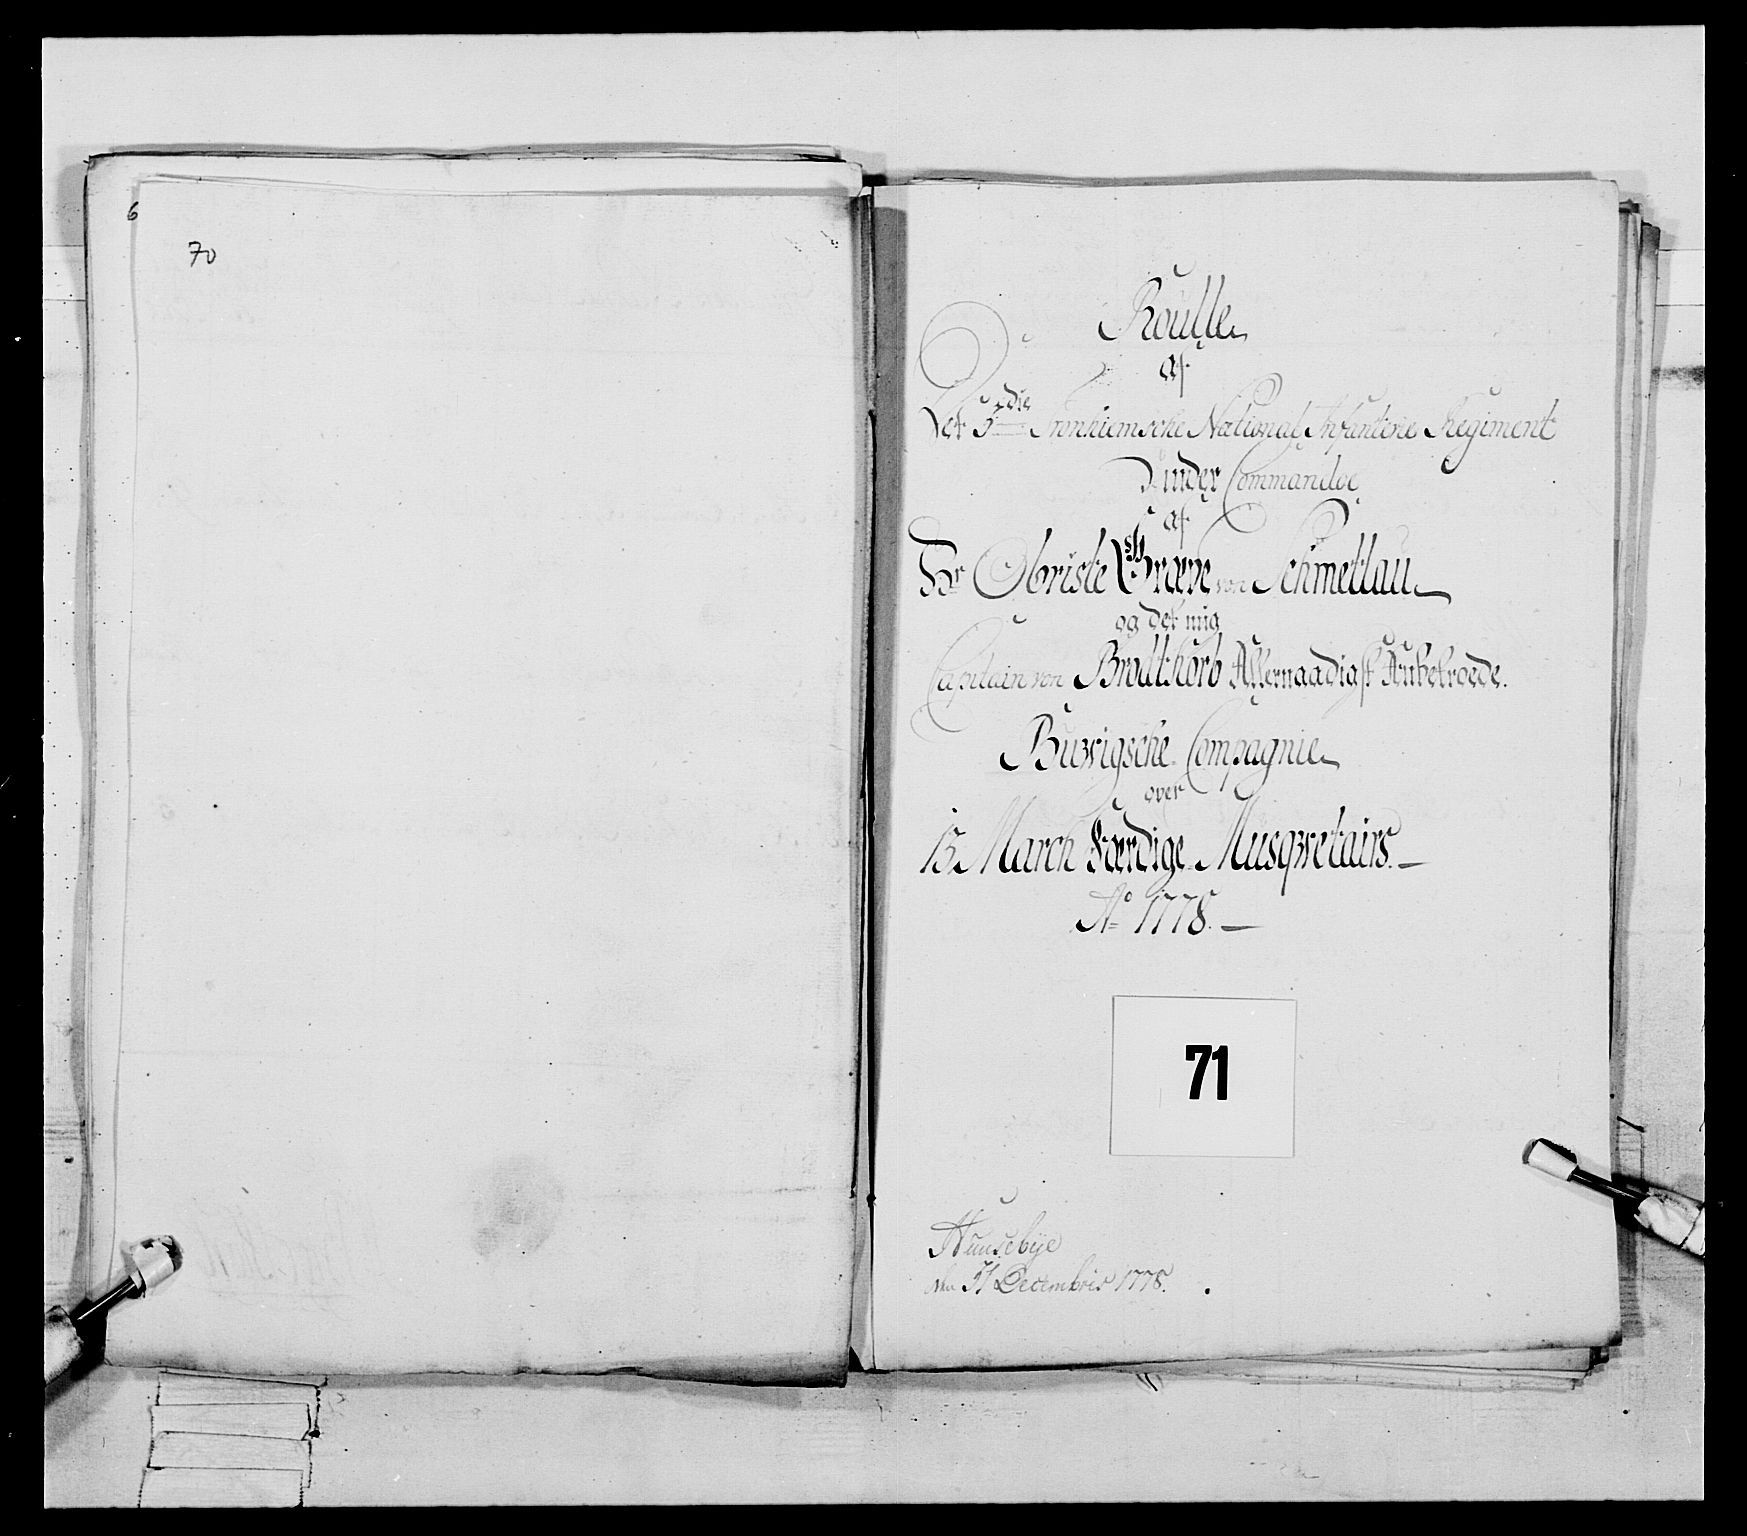 6
70
Roulle
af
Det 3die Tronhiemsche National Infanterie Regiment
Under Commandoe
af
Hr Obriste Græve von Schmettau
og det mig
Capitain von Brodtkorb Allernaadigst Anbetroede.
Buwigsche Compagnie
over
13 March færdige Musqvetairs.
Ao 1778.
71
Huusebye
den 31 Decembris 1778.